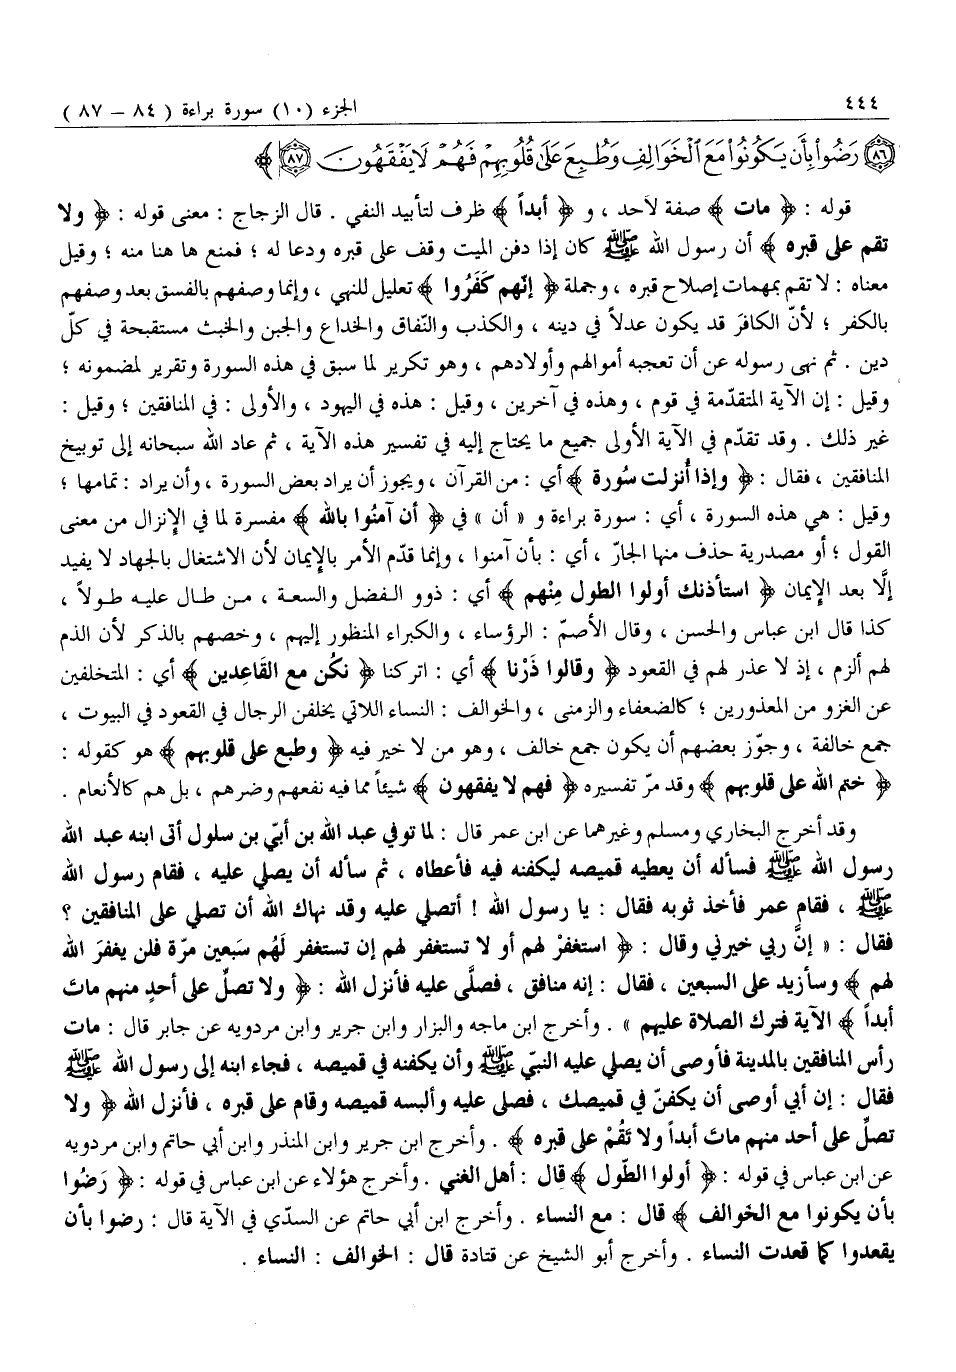 ٤٤٤
الجزء (١٠) سورة براءة ( ٨٤ – ٨٧ )
﴿٨٦﴾ رَضُوا بِأَن يَكُونُوا مَعَ الْخَوَالِفِ وَطُبِعَ عَلَىٰ قُلُوبِهِمْ فَهُمْ لَا يَفْقَهُونَ ﴿٨٧﴾ ﴾
قوله : ﴿ مات ﴾ صفة لأحد ، و ﴿ أبداً ﴾ ظرف لتأبيد النفي . قال الزجاج : معنى قوله : ﴿ ولا
تقم على قبره ﴾ أن رسول الله ﷺ كان إذا دفن الميت وقف على قبره ودعا له ؛ فمنع ها هنا منه ؛ وقيل
معناه : لا تقم بمهمات إصلاح قبره ، وجملة ﴿ إنّهم كَفَرُوا ﴾ تعليل للنهي ، وإنما وصفهم بالفسق بعد وصفهم
بالكفر ؛ لأنّ الكافرَ قد يكون عدلاً في دينه ، والكذب والنّفاق والخداع والجبن والخبث مستقبحة في كلّ
دين . ثم نهى رسوله عن أن تعجبه أموالهم وأولادهم ، وهو تكرير لما سبق في هذه السورة وتقرير لمضمونه ؛
وقيل : إن الآية المتقدّمة في قوم ، وهذه في آخرين ، وقيل : هذه في اليهود ، والأولى : في المنافقين ؛ وقيل :
غير ذلك . وقد تقدّم في الآية الأولى جميع ما يحتاج إليه في تفسير هذه الآية ، ثم عاد الله سبحانه إلى توبيخ
المنافقين ، فقال : ﴿ وإذا أُنزلت سُورة ﴾ أي : من القرآن ، ويجوز أن يراد بعض السورة ، وأن يراد : تمامها ؛
وقيل : هي هذه السورة ، أي : سورة براءة و « أن » في ﴿ أن آمنُوا بالله ﴾ مفسرة لما في الإنزال من معنى
القول ؛ أو مصدرية حذف منها الجارّ ، أي : بأن آمنوا ، وإنما قدّم الأمر بالإيمان لأن الاشتغال بالجهاد لا يفيد
إلَّا بعد الإيمان ﴿ استأذنك أولوا الطول مِنْهم ﴾ أي : ذوو الفضل والسعة ، من طال عليه طولاً ،
كذا قال ابن عباس والحسن ، وقال الأصمّ : الرؤساء ، والكبراء المنظور إليهم ، وخصهم بالذكر لأن الذم
لهم ألزم ، إذ لا عذر لهم في القعود ﴿ وقالوا ذَرْنا ﴾ أي : اتركنا ﴿ نكُن مع القَاعِدين ﴾ أي : المتخلفين
عن الغزو من المعذورين ؛ كالضعفاء والزمنى ، والخوالف : النساء اللاتي يخلفن الرجال في القعود في البيوت ،
جمع خالفة ، وجوّز بعضهم أن يكون جمع خالف ، وهو من لا خير فيه ﴿ وطبع على قلوبهم ﴾ هو كقوله :
﴿ ختم الله على قلوبهم ﴾ وقد مرّ تفسيره ﴿ فهم لا يفقهون ﴾ شيئاً مما فيه نفعهم وضرهم ، بل هم كالأنعام .
وقد أخرج البخاري ومسلم وغيرهما عن ابن عمر قال : لما توفي عبد الله بن أبيّ بن سلول أتى ابنه عبد الله
رسول الله ﷺ فسأله أن يعطيه قميصه ليكفنه فيه فأعطاه ، ثم سأله أن يصلي عليه ، فقام رسول الله
ﷺ ، فقام عمر فأخذ ثوبه فقال : يا رسول الله ! أتصلي عليه وقد نهاك الله أن تصلي على المنافقين ؟
فقال : « إنَّ ربي خيرني وقال : ﴿ استغفرْ لهم أو لا تستغفر لهم إن تستغفر لَهُم سَبعين مرّة فلن يغفرَ الله
لهم ﴾ وسأزيد على السبعين ، فقال : إنه منافق ، فصلَّى عليه فأنزل الله : ﴿ ولا تصلِّ على أحدٍ منهم ماتَ
أبداً ﴾ الآية فترك الصلاة عليهم » . وأخرج ابن ماجه والبزار وابن جرير وابن مردويه عن جابر قال : مات
رأس المنافقين بالمدينة فأوصى أن يصلي عليه النبيّ ﷺ وأن يكفنه في قميصه ، فجاء ابنه إلى رسول الله ﷺ
فقال : إن أبي أوصى أن يكفنّ في قميصك ، فصلى عليه وألبسه قميصه وقام على قبره ، فأنزل الله ﴿ ولا
تصلِّ على أحد منهم ماتَ أبداً ولا تَقُمْ على قبره ﴾ . وأخرج ابن جرير وابن المنذر وابن أبي حاتم وابن مردويه
عن ابن عباس في قوله : ﴿ أولوا الطّول ﴾ قال : أهل الغني . وأخرج هؤلاء عن ابن عباس في قوله : ﴿ رَضُوا
بأن يكونوا مع الخوالف ﴾ قال : مع النساء . وأخرج ابن أبي حاتم عن السدّي في الآية قال : رضوا بأن
يقعدوا كما قعدت النساء . وأخرج أبو الشيخ عن قتادة قال : الخوالف : النساء .